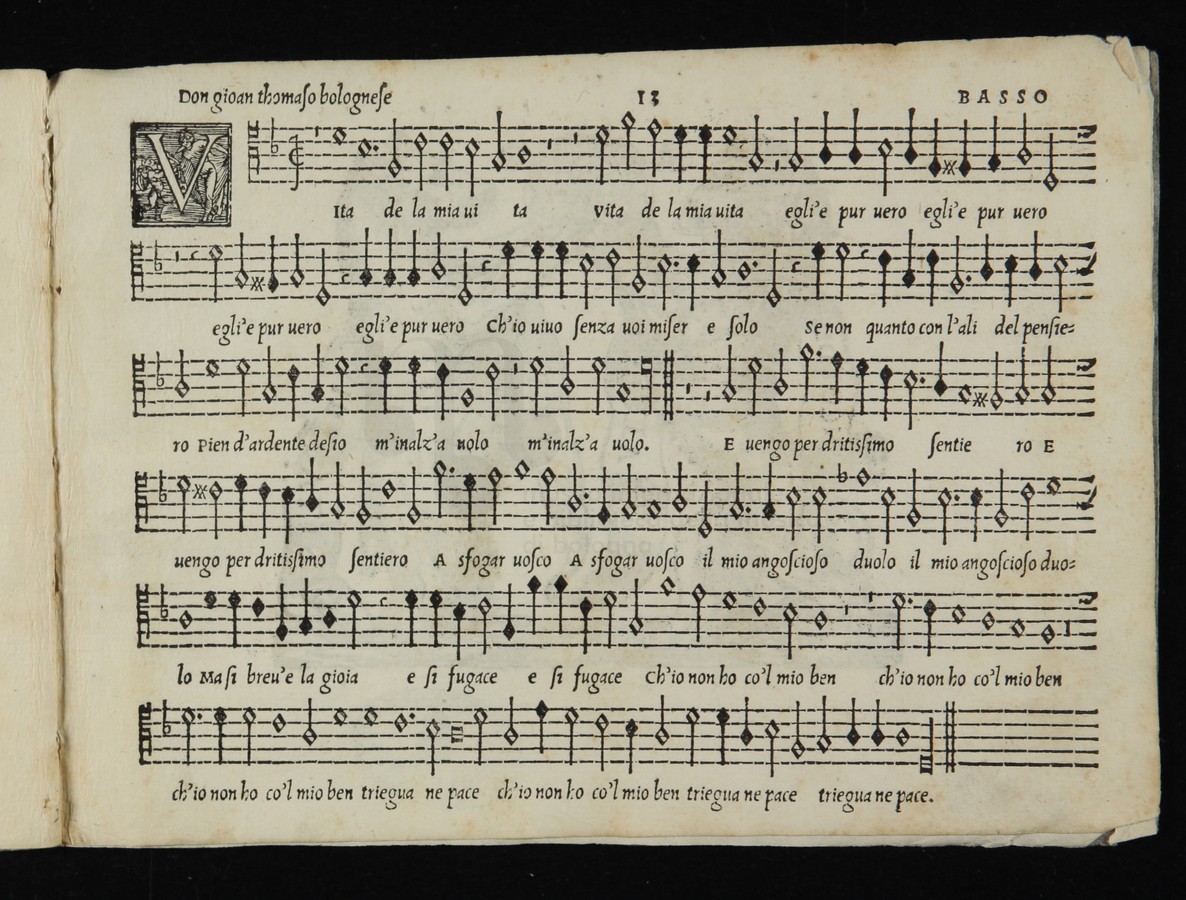 Don gioan thomaſo bologneſe 13 BASSO
VIta de la mia ui ta Vita de la mia uita egli'e pur uero egli'e pur uero
egli'e pur uero egli'e pur uero Ch'io uiuo ſenza uoi miſer e ſolo Se non quanto con l'ali del penſie=
ro Pien d'ardente deſio m'inalz'a uolo m'inalz'a uolo. E uengo per dritiſſimo ſentie ro E
uengo per dritiſſimo ſentiero A sfogar uoſco A sfogar uoſco il mio angoſcioſo duolo il mio angoſcioſo duo=
lo Ma ſi breu'e la gioia e ſi fugace e ſi fugace Ch'io non ho co'l mio ben ch'io non ho co'l mio ben
ch'io non ho co'l mio ben triegua ne pace ch'io non ho co'l mio ben triegua ne pace triegua ne pace.